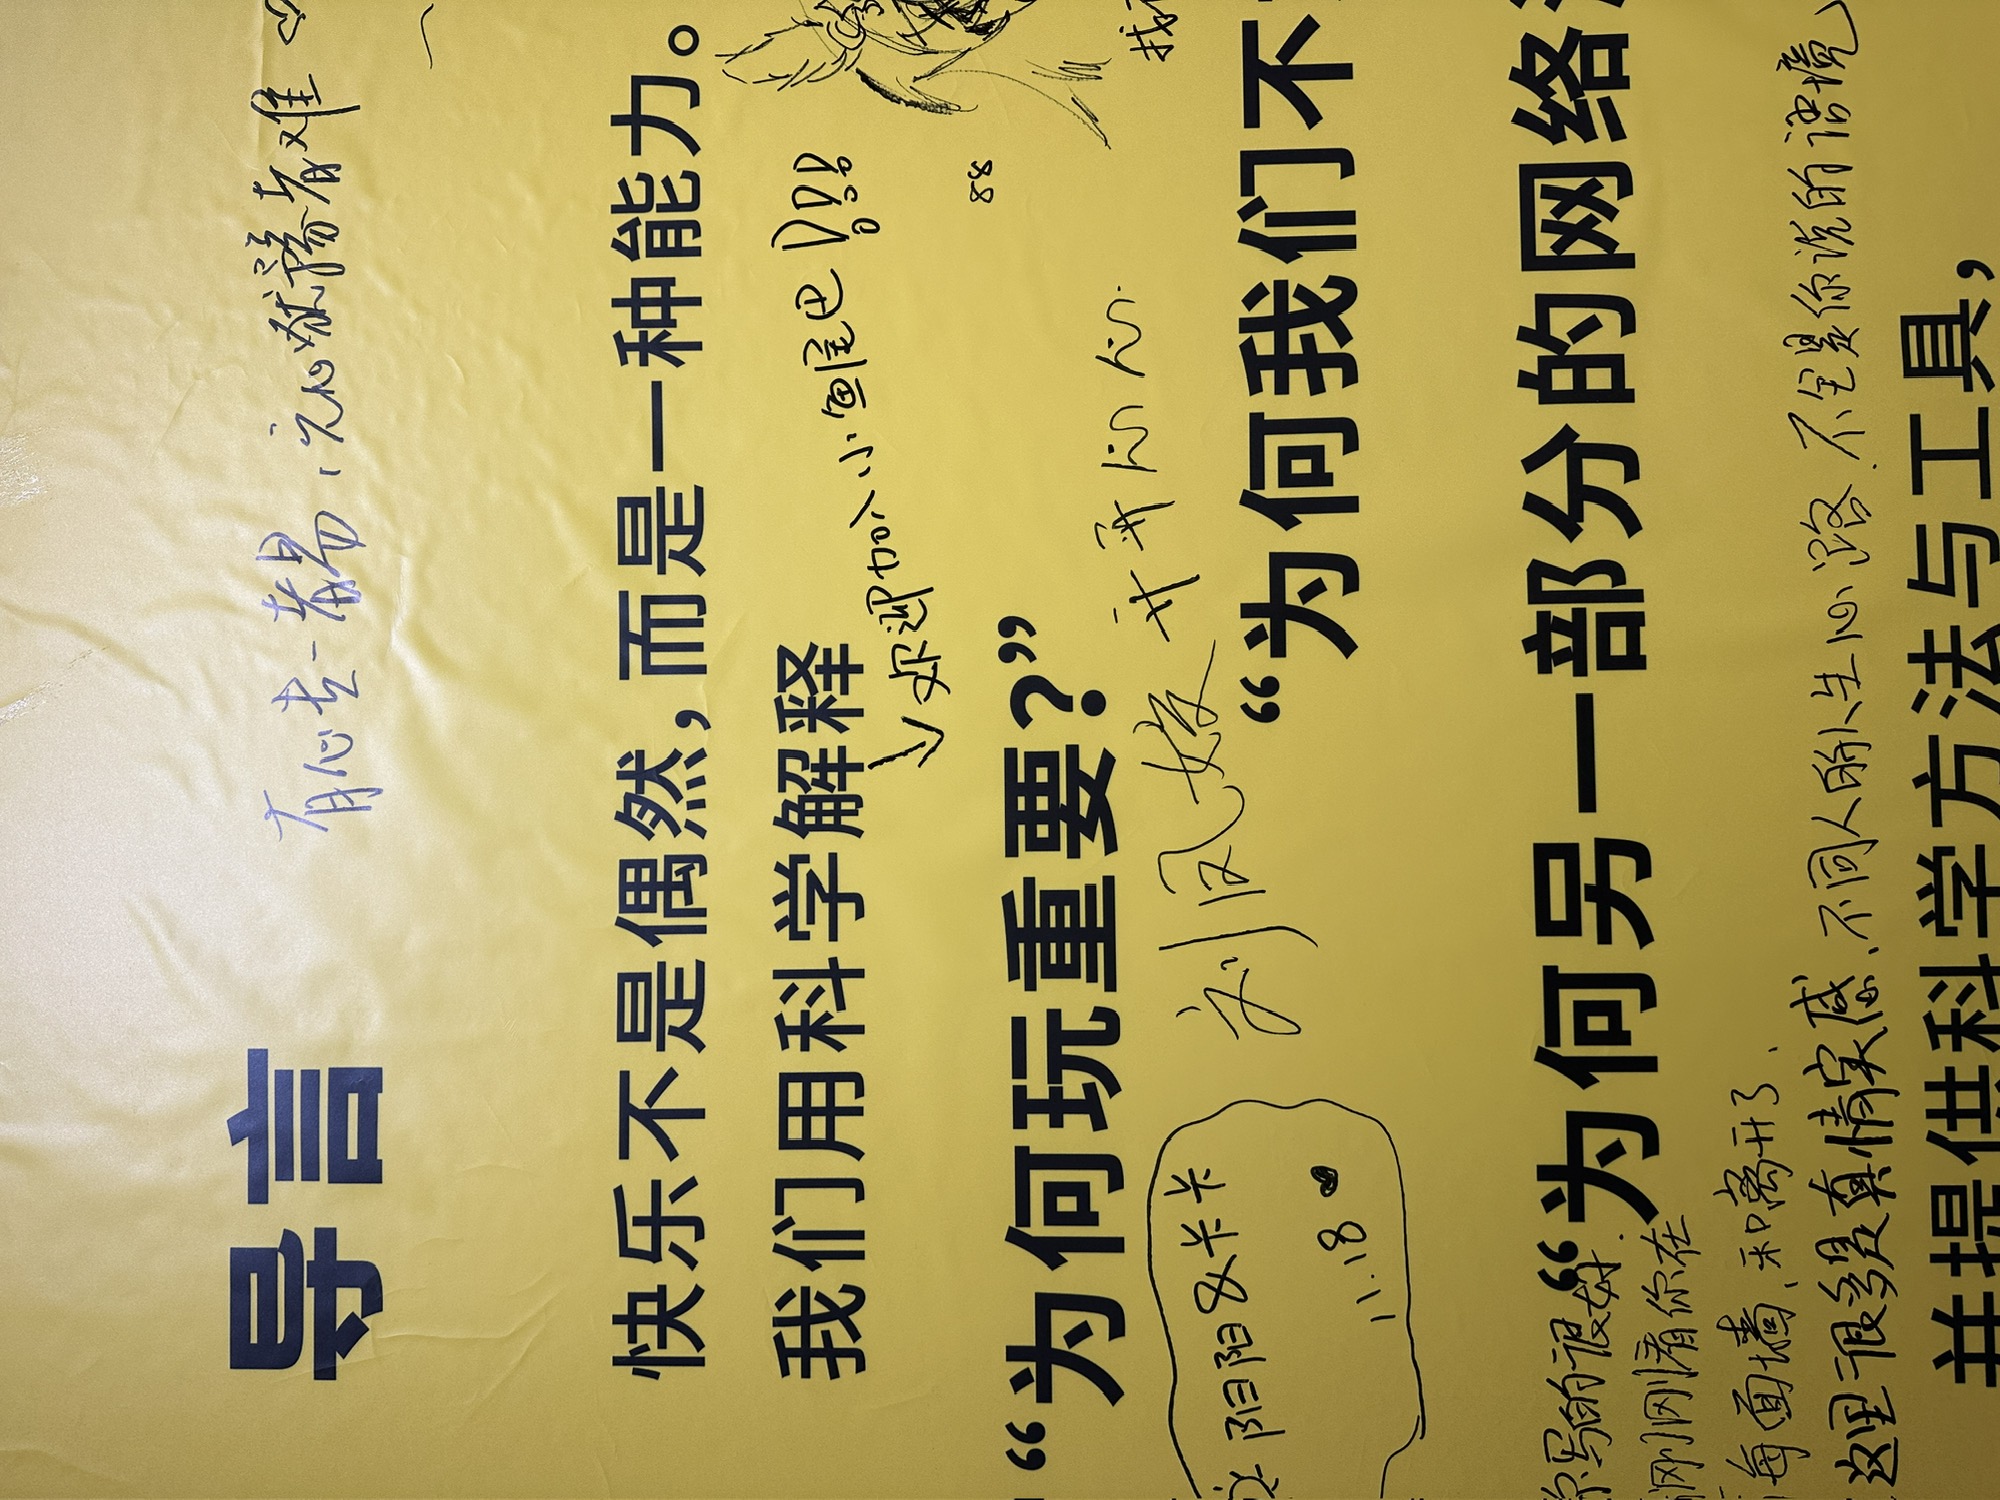 导言
有心者一者易，元心犹豫者难
快乐不是偶然，而是一种能力。
我们用科学解释
欢迎加入小鱼尾巴
88
“为何玩重要？”
刘凤姣 开开心心
我
阳阳&卡卡
11.18
“为何我们不
“为何另一部分的网络
你写的很好.
刚刚看你在
每面墙、和离开了.
这里很多真情实感、不同人的人生心路.不全是你说的语境
并提供科学方法与工具，